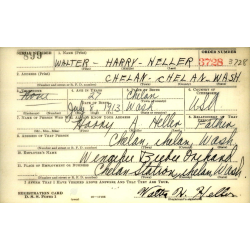 SERIAL NUMBER 1. NAME (Print) ORDER NUMBER
899 WALTER - HARRY - HELLER 3728 3728
2. ADDRESS (Print)
CHELAN - CHELAN - WASH
3. TELEPHONE 4. AGE IN YEARS 5. PLACE OF BIRTH 6. COUNTRY OF CITIZENSHIP
None 27 Chelan
DATE OF BIRTH
1913 Wash USA
7. NAME OF PERSON WHO WILL ALWAYS KNOW YOUR ADDRESS 8. RELATIONSHIP OF THAT PERSON
Harry A Heller Father
9. ADDRESS OF THAT PERSON
Chelan, Chelan, Wash
10. EMPLOYER'S NAME
Orchard
11. PLACE OF EMPLOYMENT OR BUSINESS
Chelan Station, Chelan, Wash
I AFFIRM THAT I HAVE VERIFIED ABOVE ANSWERS AND THAT THEY ARE TRUE.
REGISTRATION CARD
D. S. S. Form 1 Walter H. Heller